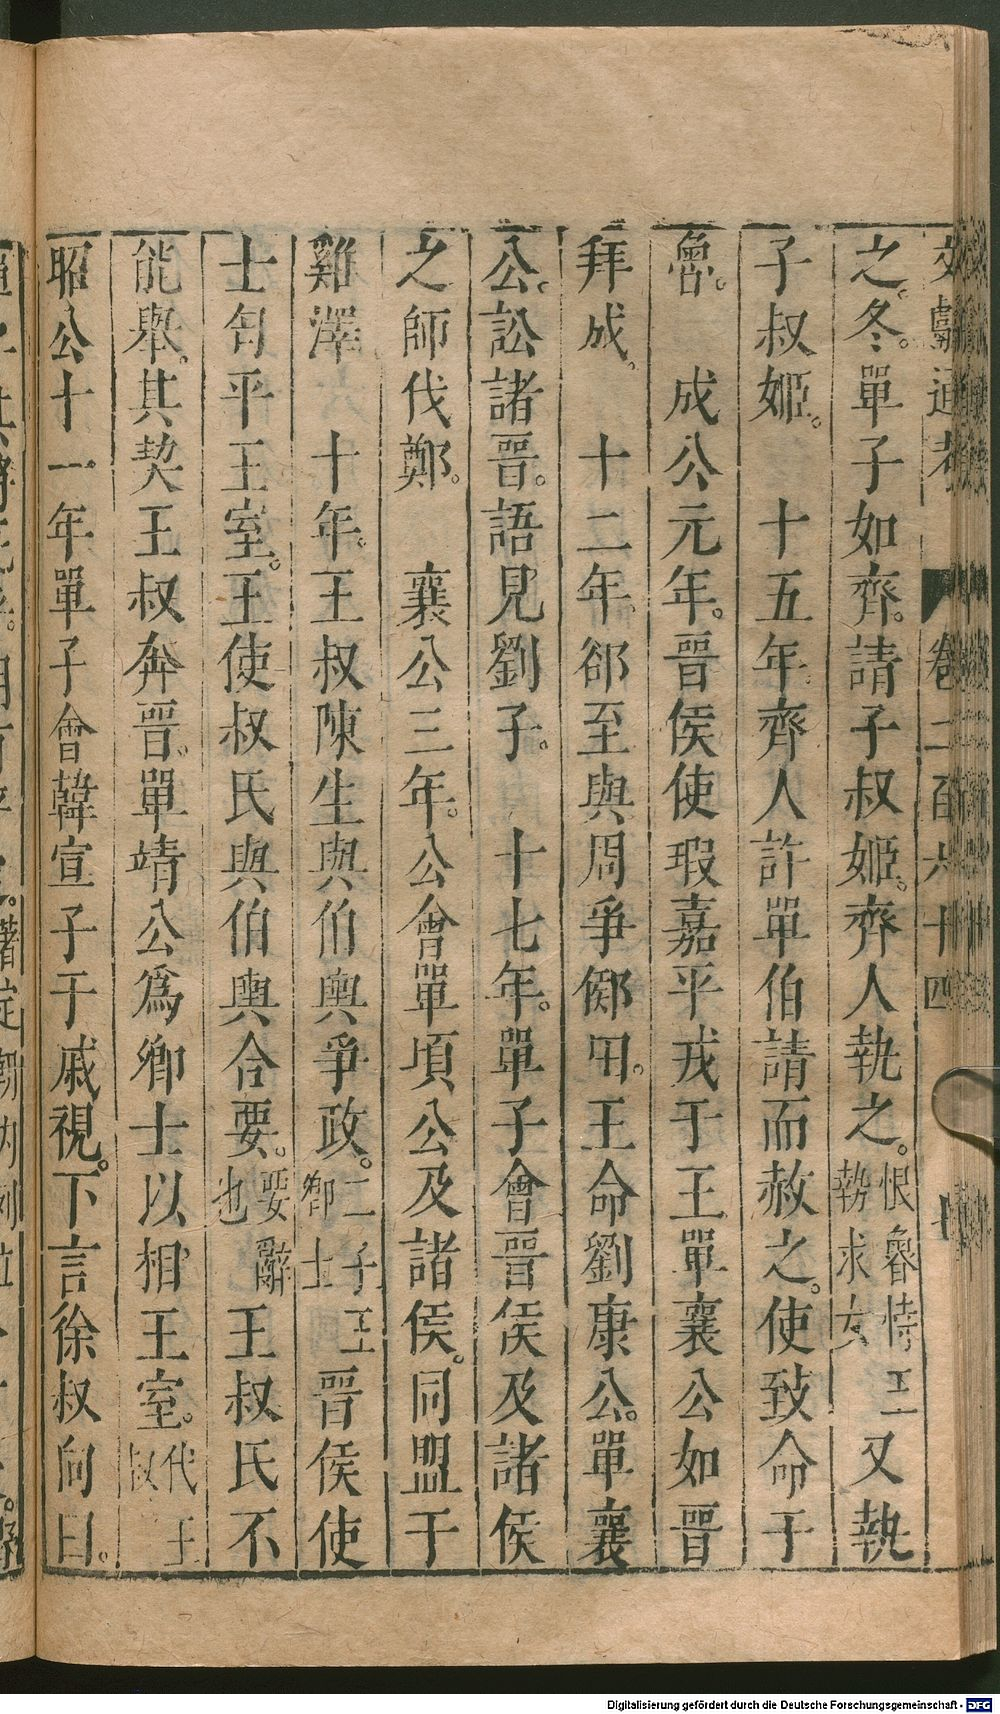 文獻通考 卷二百六十四
之。冬。單子如齊。請子叔姬。齊人執之。恨魯恃王勢求女又執
子叔姬。 十五年。齊人許單伯請而赦之。使致命于
魯。 成公元年。晉侯使瑕嘉平戎于王單襄公如晉
拜成。 十二年。郤至與周爭鄇田。王命劉康公。單襄
公。訟諸晉。語見劉子。 十七年。單子會晉侯及諸侯
之師伐鄭。 襄公三年。公會單頃公及諸侯。同盟于
雞澤 十年。王叔陳生與伯輿爭政。二子王卿士晉侯使
士匄平王室。王使叔氏與伯輿合要。要辭也王叔氏不
能舉。其契王叔奔晉。單靖公為卿士以相王室。代王叔
昭公十一年單子會韓宣子于戚視。下言徐叔向曰。
Digitalisierung gefördert durch die Deutsche Forschungsgemeinschaft - DFG